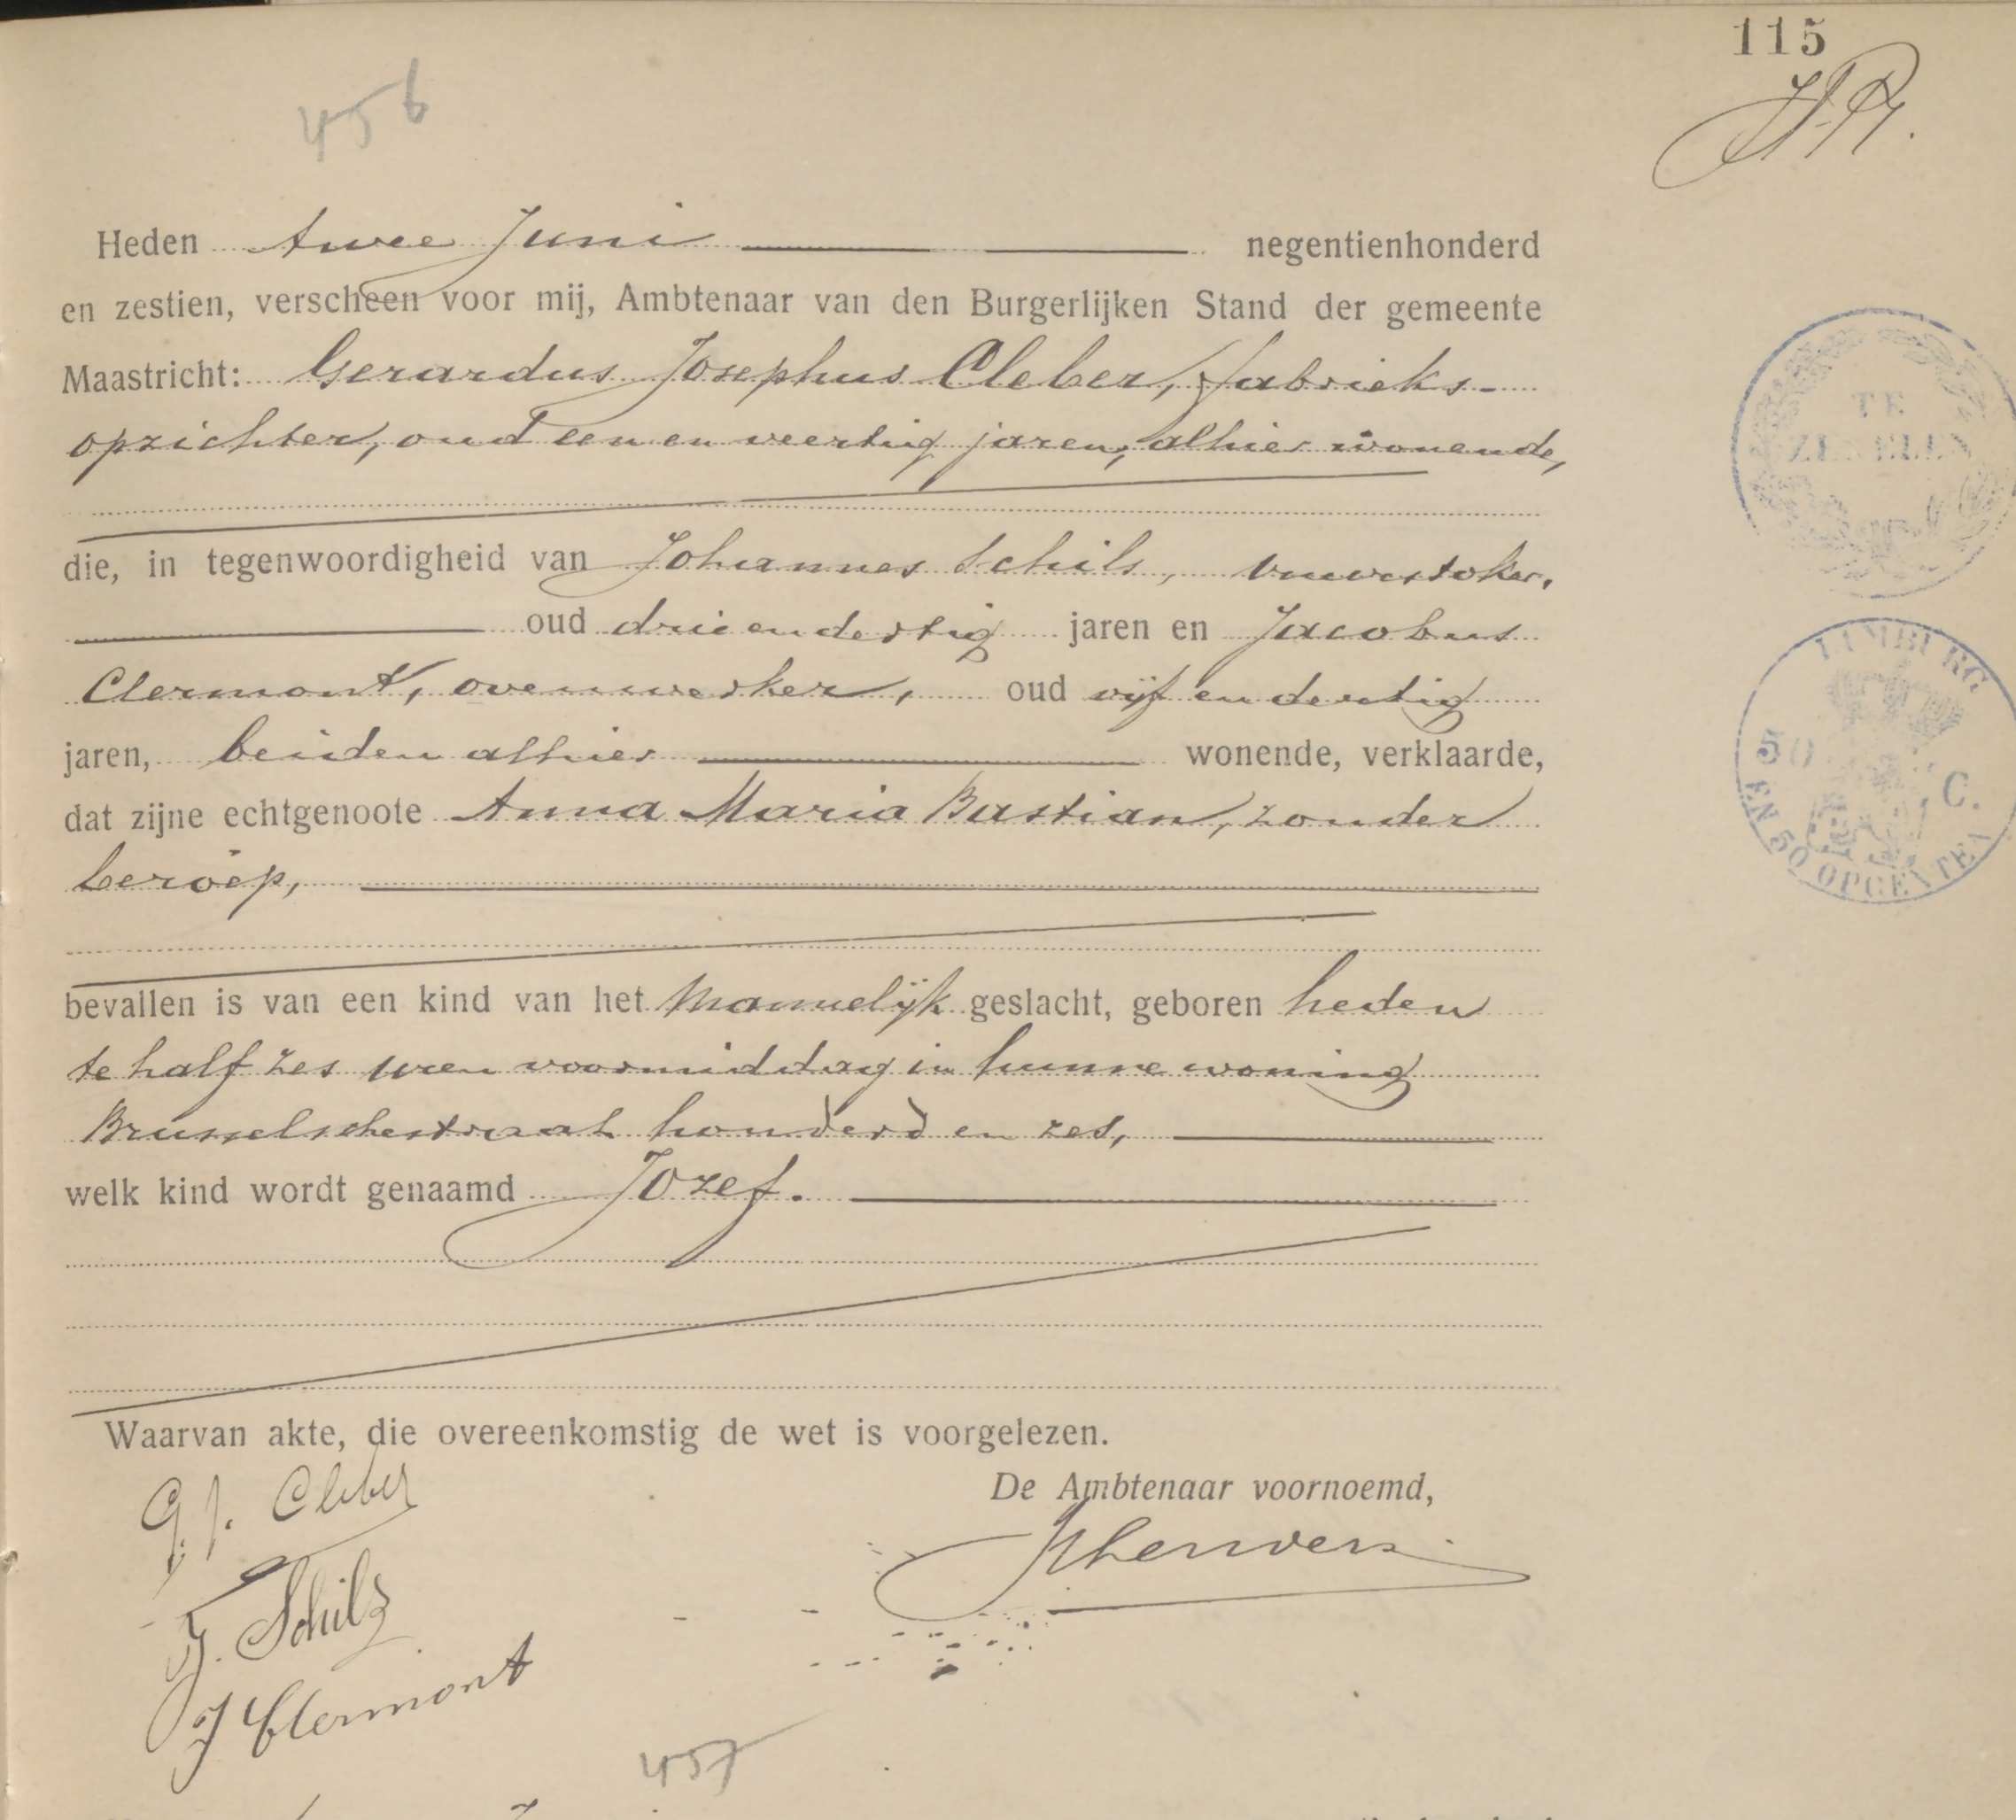 115
456
Heden twee Juni negentienhonderd
en zestien, verscheen voor mij, Ambtenaar van den Burgerlijken Stand der gemeente
Maastricht: Gerardus Josephus Cleber, fabrieks-
opzichter, oud een en veertig jaren, alhier wonende,
die, in tegenwoordigheid van Johannes Schils, vuurstoker,
oud drie en dertig jaren en Jacobus
Clermont, ovenwerker, oud vijf en dertig
jaren, beiden alhier wonende, verklaarde,
dat zijne echtgenoote Anna Maria Bastian, zonder
beroep,
bevallen is van een kind van het mannelijk geslacht, geboren heden
te half zes uren voormiddag in hunne woning
Brusselschestraat honderd en zes,
welk kind wordt genaamd Jozef.
Waarvan akte, die overeenkomstig de wet is voorgelezen.
De Ambtenaar voornoemd,
G. J. Cleber
J. Schilz
J Clermont
457
TE
ZEGELEN
LIMBURG
50 C.
EN 50 OPCENTEN